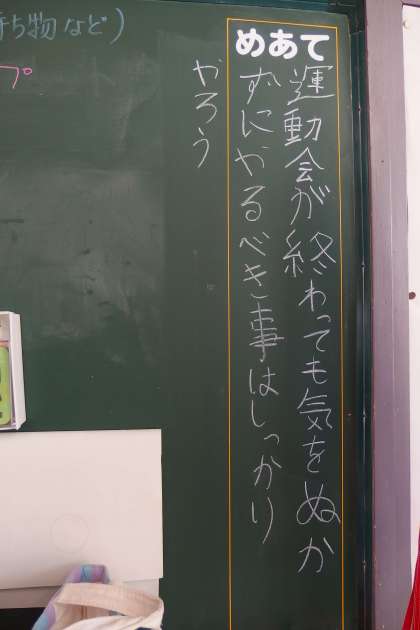 めあて
運動会が終わっても気をぬか
ずにやるべき事はしっかり
やろう
ち物など)
プ